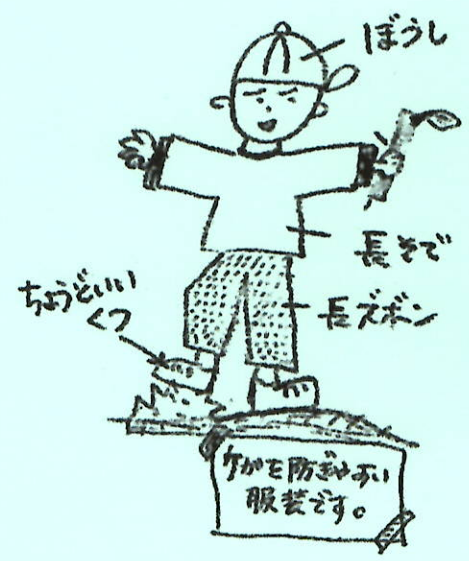 ぼうし
長そで
長ズボン
ちょうどいい
くつ
ケガを防ぎやすい
服装です。